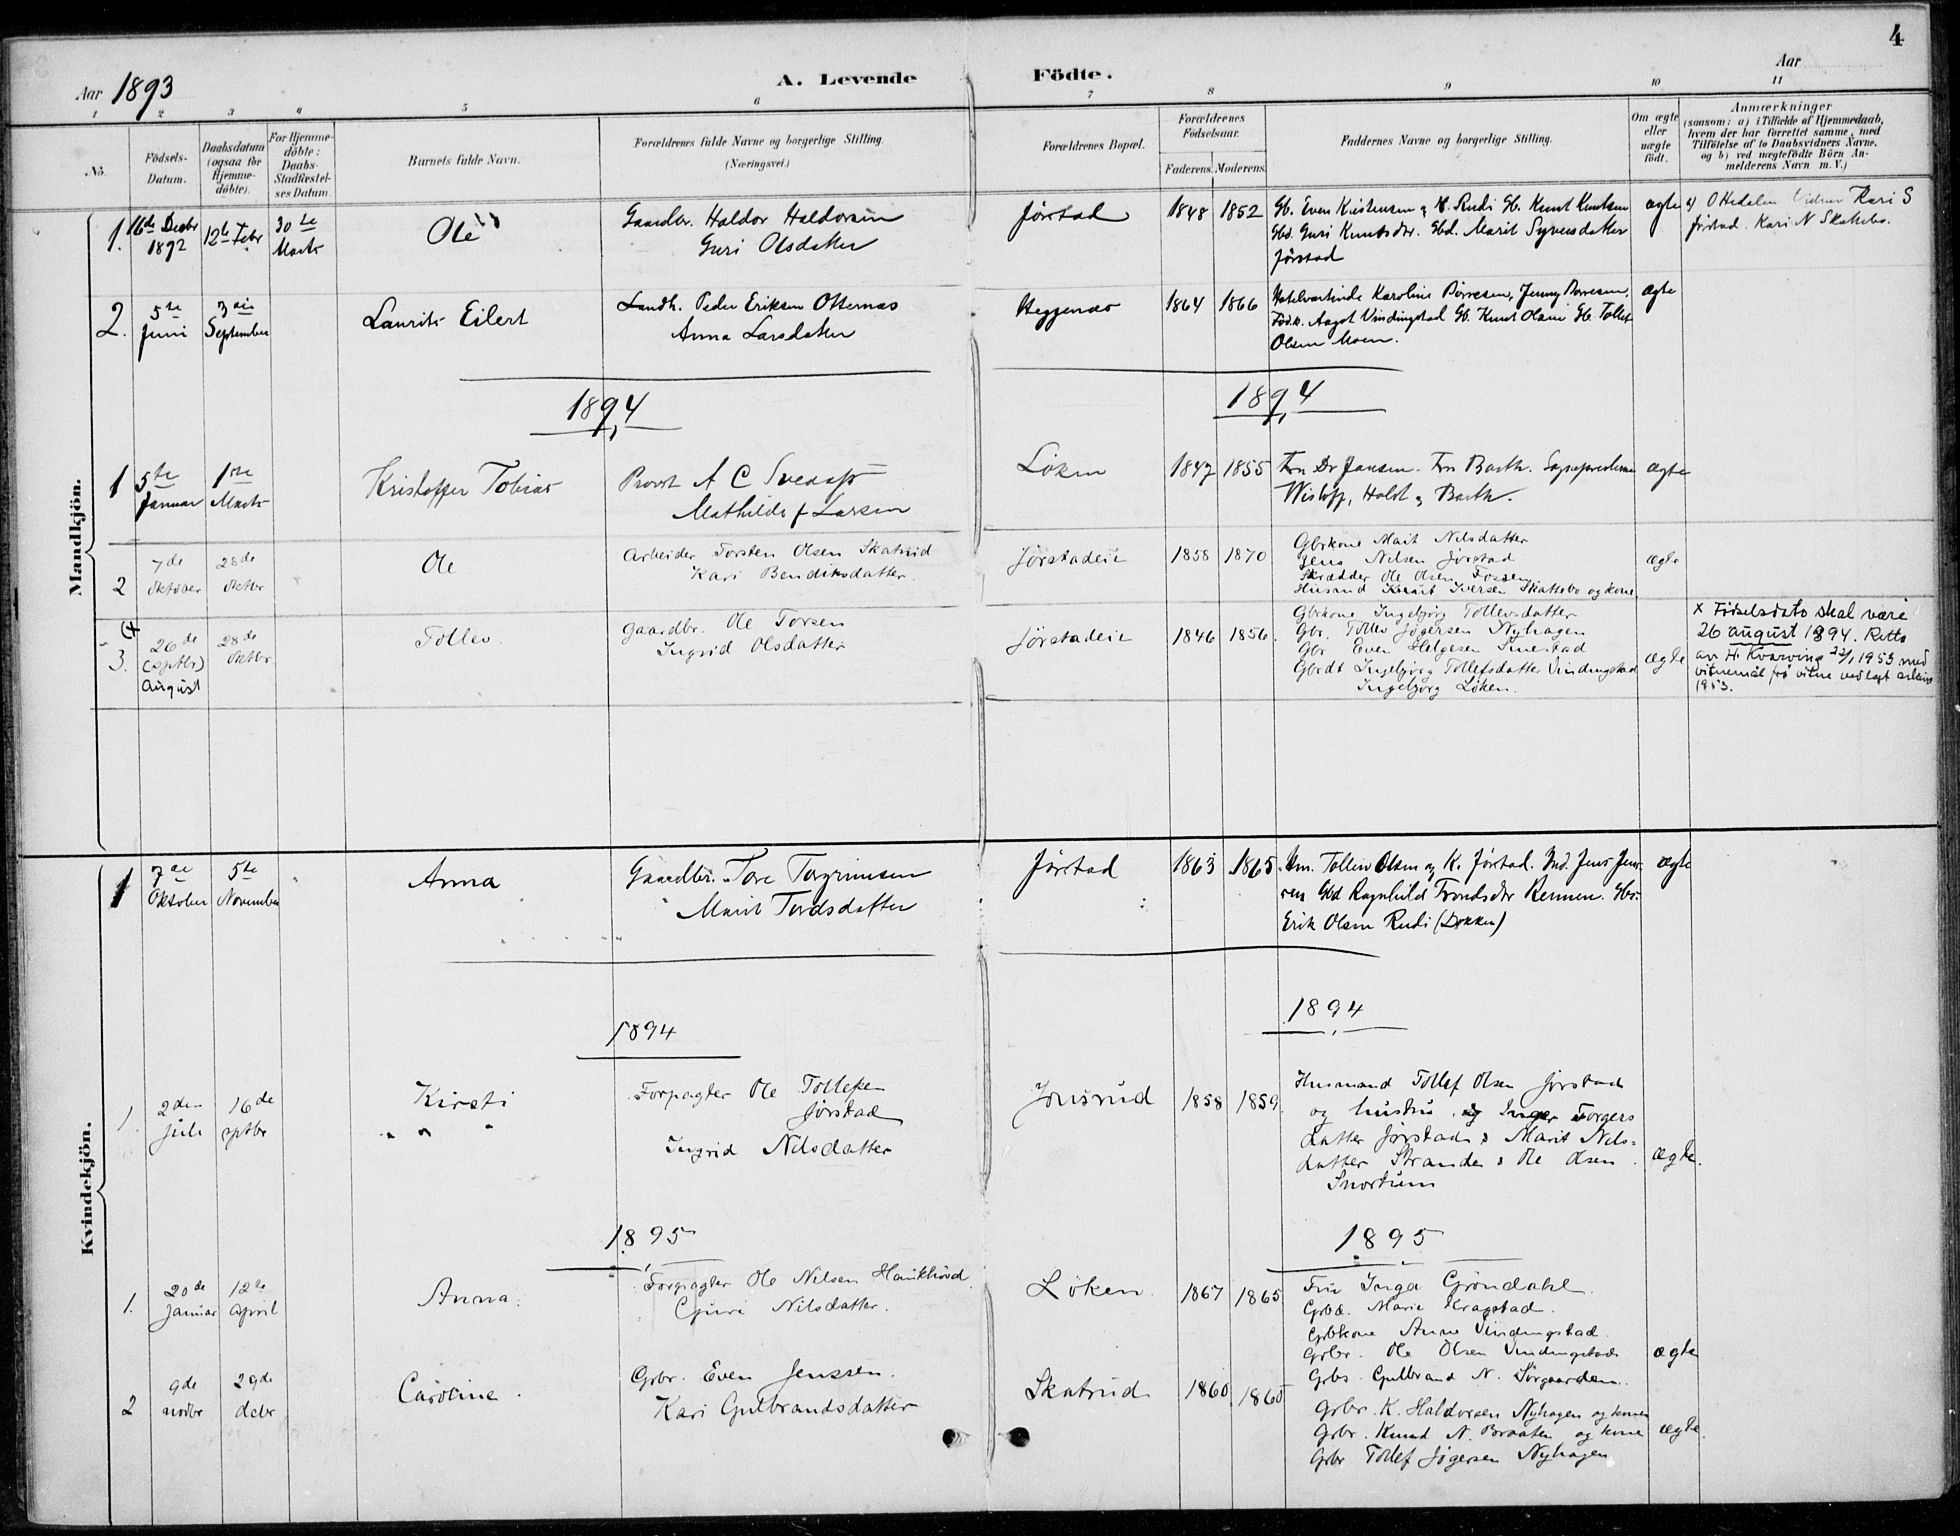 4
Aar 1893
A. Levende
Födte.
Aar
1 2 3 4 5 6 7 8 9 10 11
No.
Födsels-
Datum.
Daabsdatum
(ogsaa for
Hjemme-
döbte).
For Hjemme-
döbte:
Daabs-
Stadfæstel-
ses Datum.
Barnets fulde Navn.
Forældrenes fulde Navne og borgerlige Stilling.
(Næringsvei.)
Forældrenes Bopæl.
Forældrenes
Födselsaar.
Faderens. Moderens.
Faddernes Navne og borgerlige Stilling.
Om ægte
eller
uægte
födt.
Anmærkninger
(saasom: a) i Tilfælde af Hjemmedaab,
hvem der har forrettet samme, med
Tilföielse af to Daabsvidners Navne,
og b) ved uægtefödte Börn An-
melderens Navn m. V.)
Mandkjön.
1. 16de Decbr
1892
12te Febr
30te
Marts
Ole
Gaardbr. Haldor Haldorsen
Guri Olsdatter
Jørstad
1848 1852
Gb. Even Kristensen & K. Rudi Gb. Knut Knutsen
Gbd. Guri Knutsdr. Gbd. Marit Syversdatter
Jørstad
ægte
Kari S
Jørstad. Kari N Skattebo.
2. 5te
Juni
3die
September
Laurits Eilert
Landh. Peder Eriksen Otternæs
Anna Larsdatter
Heggenæs
1864 1866
Karoline Börresen, Jenny Börresen,
Aagot Vindingstad Gb. Knut Olsen Gb. Tollef
Olsen Moen.
ægte
1894
1894
1 5te
Januar
1ste
Marts
Kristoffer Tobias
Provst A C
Mathilde f Larsen
Løken
1847 1855
Fru Dr Jansen. Fru Barth. Sogneprésterne
Wisløff, Holst & Barth.
ægte
2 7de
Oktober
28de
Oktbr
Ole
Arbeider Torsten Olsen Skatrud
Kari Bendiksdatter.
Jørstadeie
1858 1870
Gbrkone Marit Nilsdatter
Jens Nilsen Jørstad
Skrædder Ole Olsen Fossen
Knut Iversen Skattebo og kone
ægte
3. 26de
(septbr)
August
28de
Oktbr
Tollev.
Gaardbr. Ole Torsen
Ingrid Olsdatter
Jørstadeie
1846 1856.
Gbrkone Ingebjørg Tollevsdatter
Gbr. Tollev Jøgersen Nyhagen
Gbr Even Helgesen
Gbrdt Ingebjørg Tollefsdatter Vindingstad
Ingebjørg Løken.
ægte
x Fødselsdato skal være
26 august 1894. Retta
av H. Kvarving 22/1 1953 med
vitnemål frå vitne vedlagt arkivet
1953.
Kvindekjön.
1 7de
Oktober
5te
November
Anna
Gaardbr. Tore Torgrimsen
Marit Tordsdatter
Jørstad
1863 1865
Tollev Olsen og K. Jørstad. Ind. Jens Jen-
sen Gbd Ragnhild Trondsdtr Rennen. Gbr.
Erik Olsen Rudi (Lokken)
ægte
1894
1894
1. 2den
Juli
16de
sptbr
Kirsti
Forpagter Ole Tollefsen
Jørstad
Ingrid Nilsdatter
Jonsrud
1858 1859
Husmand Tollef Olsen Jørstad
og hustru. Inger Torgers
datter Jørstad & Marit Nils-
datter Strande & Ole Olsen
Snortum
ægte.
1895
1895
1. 20de
Januar
12te
April
Anna.
Forpagter Ole Nilsen Haukhovd
Gjuri Nilsdatter.
Løken
1867 1865
Fru Inga Gröndahl.
Gbd. Marie Kragstad.
Gbkone Anne Vindingstad.
Grbr. Ole Olsen Vindingstad
Grbs. Gulbrand N. Sörgaarden.
ægte
2 9de
novbr
29de
debr
Caroline.
Grbr. Even Jenssen.
Kari Gulbrandsdatter
Skatrud
1860 1865
Grbr. K. Haldorsen Nyhagen og kone
Grbr. Knud N. Braaten og kone
Grbr Tollef Jögersen Nyhagen
ægte.